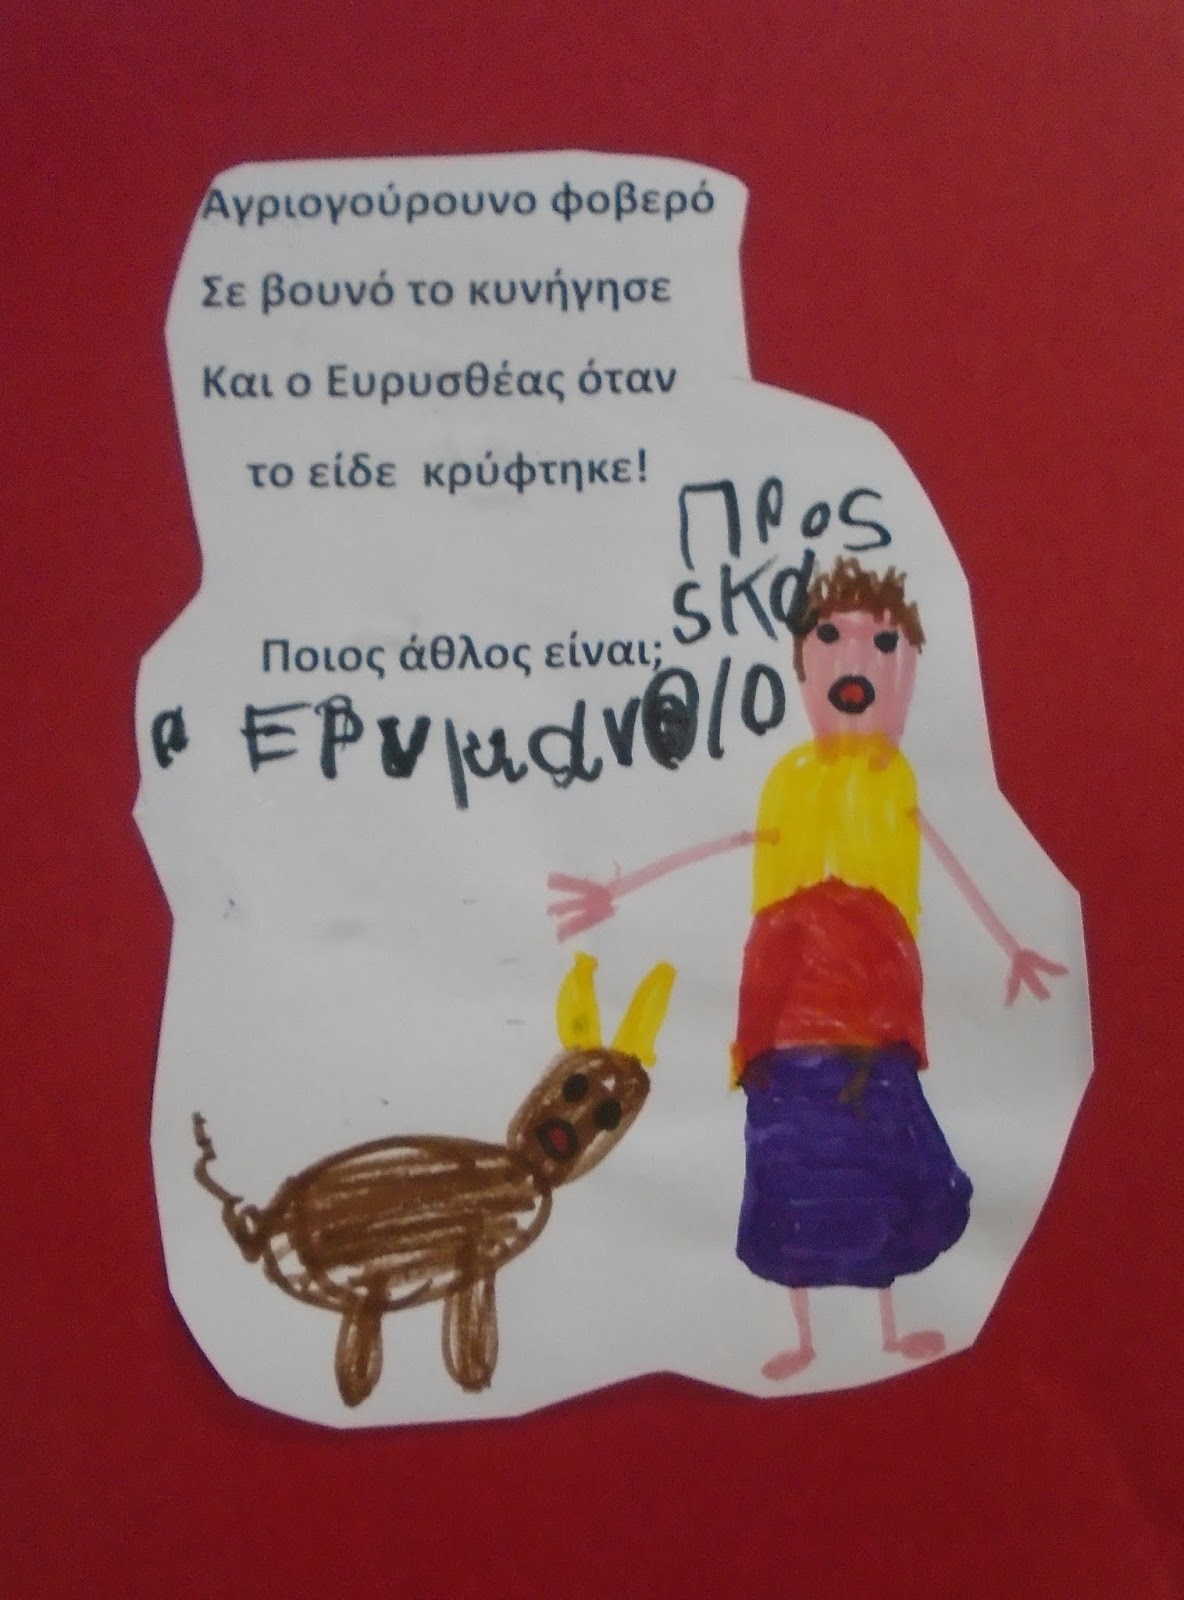 Αγριογούρουνο φοβερό
Σε βουνό το κυνήγησε
Και ο Ευρυσθέας όταν
το είδε κρύφτηκε!
Ποιος άθλος είναι;
ΕΡυμανθιο
Προs
sκα